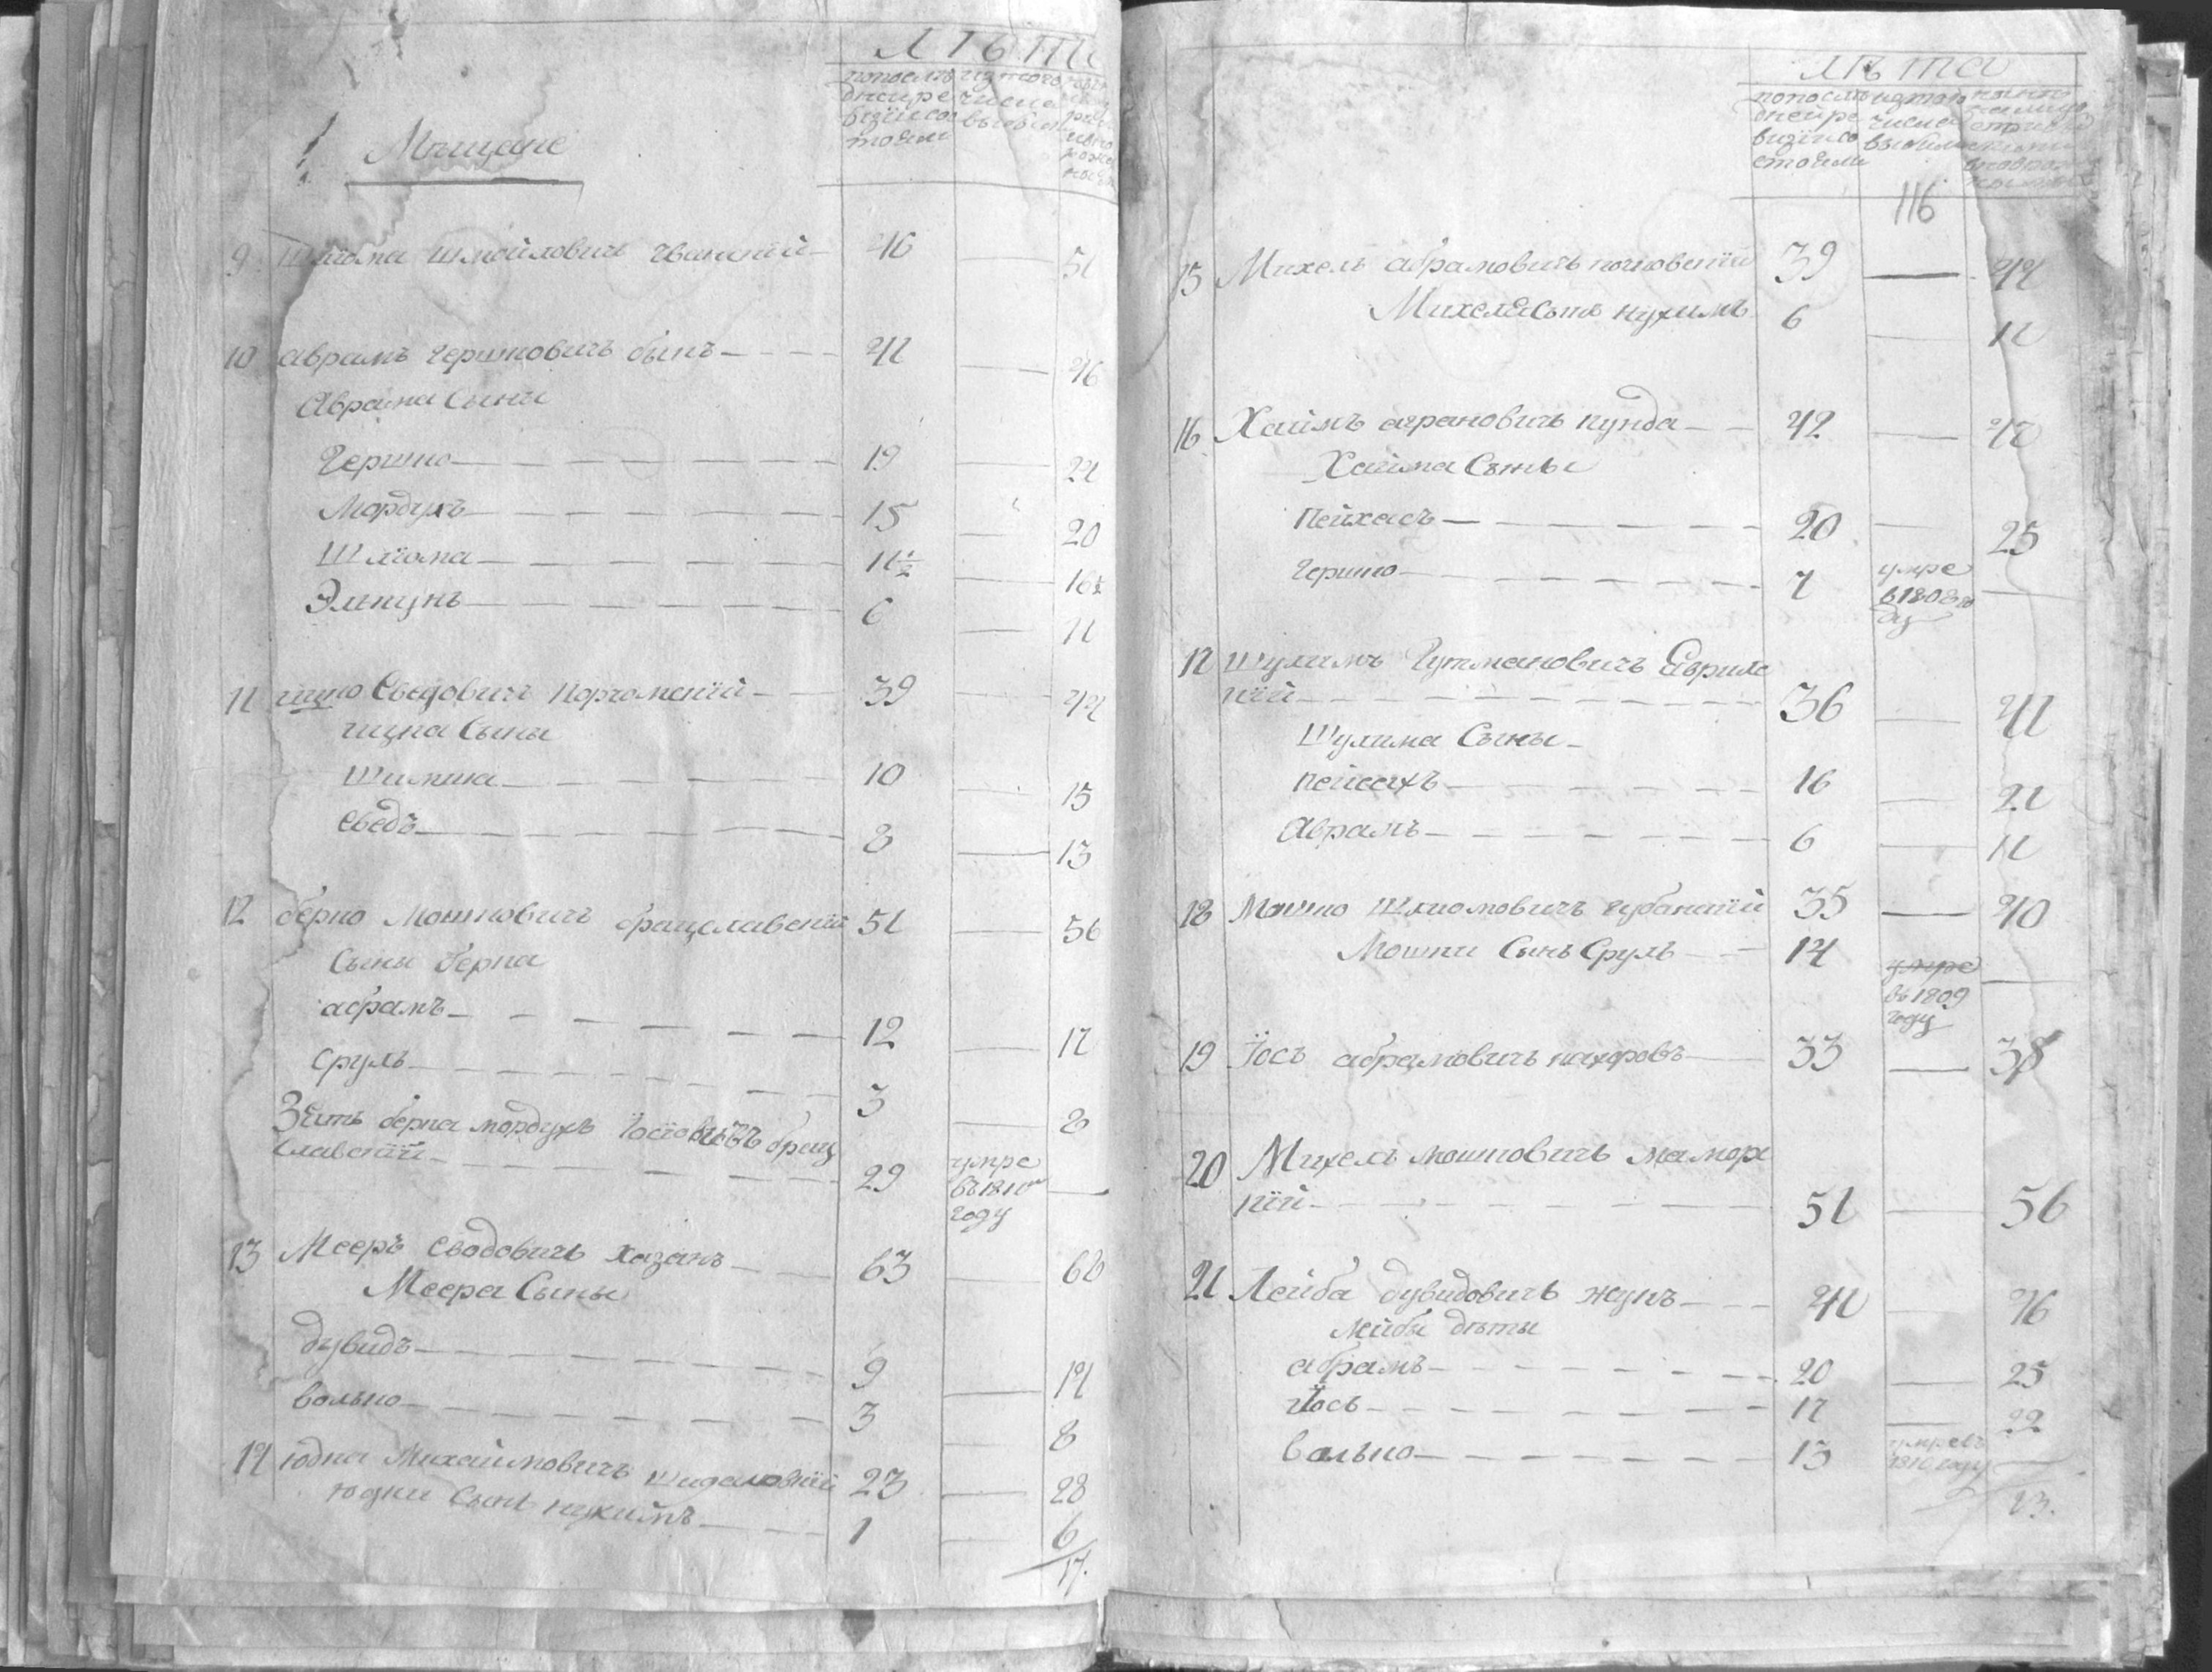 ЛѢТА
по последней ре
визїи со
стояли
изъ того
числа
выбыло
Мѣщане
9 Шлiома Шмойловичъ 46 — 51
10 Аврамъ Гершковичъ быкъ 41 — 46
Аврама Сыны
Гершко 19 — 24
Мордухъ 15 — 20
Шлiома 11½ — 16½
Элькунъ 6 — 11
11 Ицко Еведовичъ 39 — 44
ицка Сыны
Шимша 10 — 15
Еведъ 8 — 13
12 берко Мошковичъ брацлавскїй 51 — 56
Сыны берка
абрамъ 12 — 17
Сруль 3 — 8
Зять берка мордухъ Iосiовичъ брац
лавскїй 29 умре въ 1810м году —
13 Мееръ Еводовичъ Хазанъ 63 — 68
Меера Сыны
дувидъ 9 — 14
волько 3 — 8
14 юдка Михаиловичъ 23 — 28
юдки Сынъ нухимъ 1 — 6
17.
ЛѢТА
по последней ре
визїи со
стояли
изъ того
числа
выбыло
116
15 Михель абрамовичъ 39 — 44
Михеля Сынъ нухимъ 6 — 11
16 Хаимъ аграновичъ кунда 42 — 47
Хаима Сыны
Пейхасъ 20 — 25
Гершко 7 умре в 1808 го
ду —
17 Шулимъ Гутмановичъ
кїй 36 — 41
Шулима Сыны
пейсахъ 16 — 21
Аврамъ 6 — 11
18 Мошко Шлиомовичъ губанскїй 35 — 40
Мошки Сынъ Сруль 14 умре
въ 1809
году —
19 Їось абрамовичъ 33 — 38
20 Михель мошковичъ
кїй 51 — 56
21 Лейба дувидовичъ жукъ 41 — 46
Лейбы дѣти
абрамъ 20 — 25
Їось 17 — 22
Волько 13 умре въ
1810 году —
13.